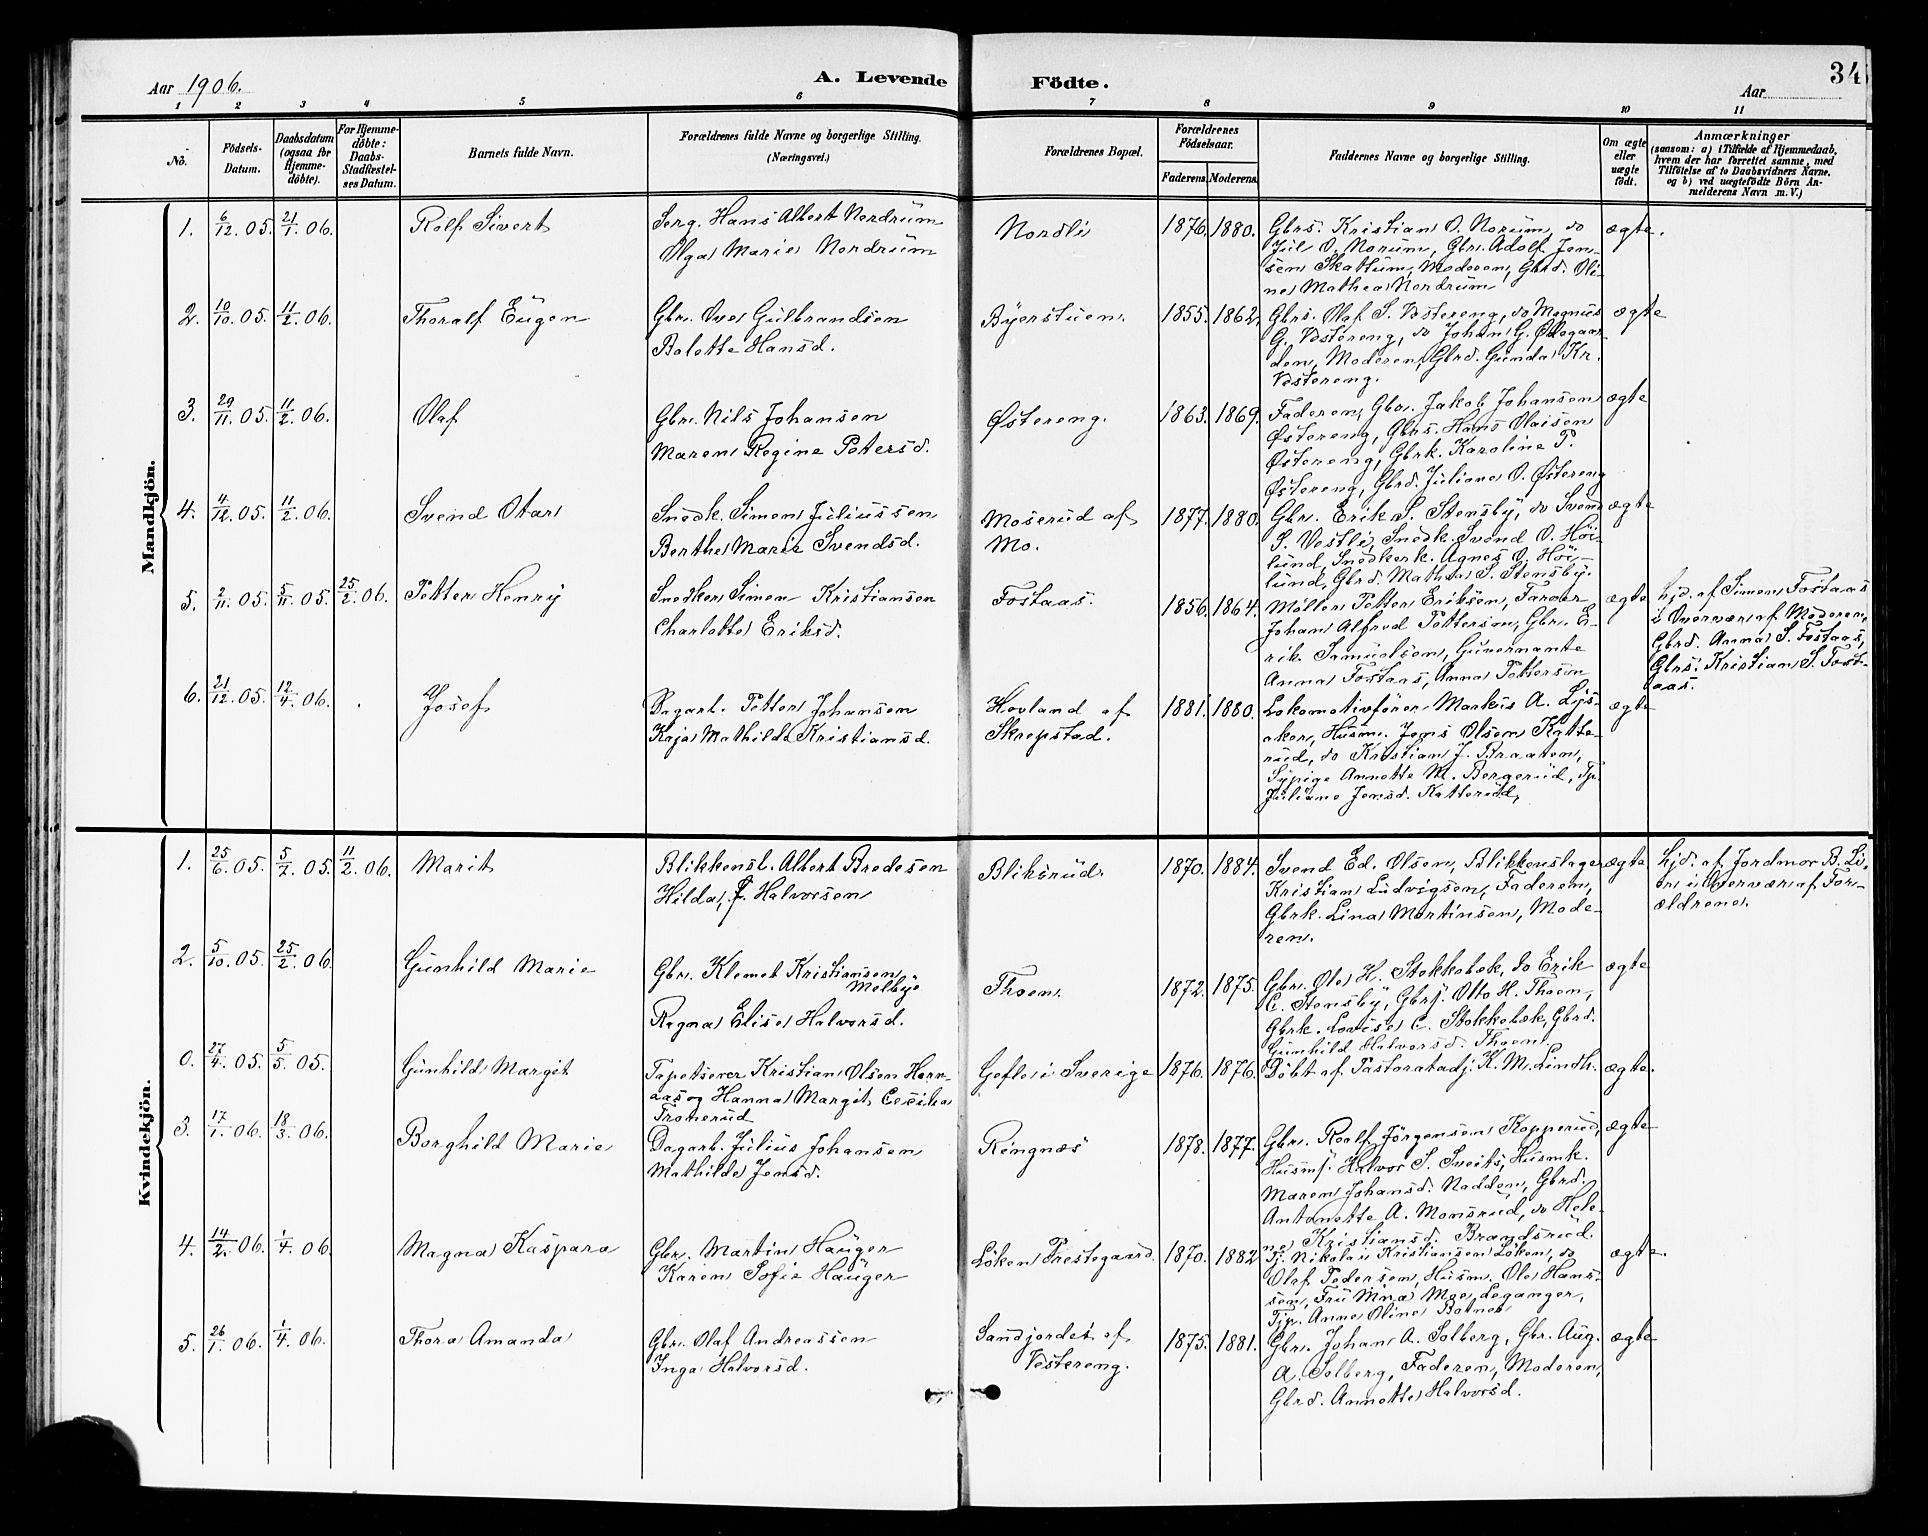 Aar 1906.
A. Levende Födte.
Aar
34
1 2 3 4 5 6 7 8 9 10 11
No.
Födsels-Datum.
Daabsdatum (ogsaa for Hjemme-döbte).
For Hjemme-döbte: Daabs-Stadfæstel-ses Datum.
Barnets fulde Navn.
Forældrenes fulde Navne og borgerlige Stilling. (Næringsvei.)
Forældrenes Bopæl.
Forældrenes Födselsaar.
Faderens. Moderens.
Faddernes Navne og borgerlige Stilling.
Om ægte eller uægte født.
Anmærkninger
(saasom: a) i Tilfælde af Hjemmedaab, hvem der har forrettet samme, med Tilføielse af to Daabsvidners Navne, og b) ved uægtefödte Börn An-melderens Navn m. V.)
Mandkjön.
1. 6/12. 05. 21/1. 06. Rolf Sivert
Serg. Hans Albert Nordrum
Olga Marie Nordrum
Nordli 1876. 1880.
Gbrs. Kristian O. Norum, do
Jul O. Norum, Gbr. Adolf Jen-
sen Skattum, Moderen, Gbrd. Oli-
ne Mathea Nordrum
ægte.
2. 10/10. 05. 11/2. 06. Thoralf Eugen
Gbr. Ove Gulbrandsen
Bolette Hansd.
Byerstuen. 1855. 1862.
Gbrs. Olaf S. Vestereng, do Magnus
G. Vestereng, do Johan G. Ødegaar-
den, Moderen, Gbrd. Gunda Kr.
Vestereng.
ægte
3. 29/11. 05. 11/2. 06. Olaf
Gbr. Nils Johansen
Maren Regine Petersd.
Østereng. 1863. 1869.
Faderen, Gbr. Jakob Johansen
Østereng, Gbrs. Hans Olaisen
Østereng, Gbrk. Karoline P.
Østereng, Gbrd. Juliane O. Østereng
ægte
4. 4/12. 05. 11/2. 06. Svend Otar
Snedk. Simen Juliussen
Berthe Marie Svendsd.
Moserud af
Mo.
1877. 1880.
Gbr. Erik S. Stensby, do Svend
S. Vestli, Snedk. Svend O. Höi-
lund, Snedkerk. Agnes O. Höi-
lund, Gbrd. Mathea S. Stensby.
ægte
5. 2/11. 05. 5/11. 05. 25/2. 06. Petter Henry
Snedker Simen Kristiansen
Charlotte Eriksd.
Fostaas. 1856. 1864.
Möller Petter Eriksen, Farver
Johan Alfred Petterson, Gbr. E-
rik Samuelsen, Guvernante
Anna Fostaas, Anna Petterson
ægte
Hjd. af Simen Fostaas
i Overvær af Moderen,
Gbrd. Anna S. Fostaas,
Gbrs. Kristian S. Fost-
aas.
6. 21/12. 05. 12/4. 06. Josef
Dagarb. Petter Johansen
Kaja Mathilde Kristiansd.
Hovland af
Skrepstad.
1881. 1880.
Lokomotivförer Markus A. Lys-
aker, Husm. Jens Olsen Katte-
rud, do Kristian J. Braaten,
Sypige Annette M. Bergerud, Tp.
Juliane Jensd. Katterud,
ægte
Kvindekjön.
1. 25/6. 05. 5/7. 05. 11/2. 06. Marit
Blikkensl. Albert Bredesen
Hilda, f. Halvorsen
Bliksrud. 1870. 1884.
Svend Ed. Olsen, Blikkenslager
Kristian Ludvigsen, Faderen,
Gbrk. Lina Martinsen, Mode-
ren.
ægte
Hjd. af Jordmor B. Li-
en i Overvær af For-
ældrene.
2. 5/10. 05. 25/2. 06 Gunhild Marie
Gbr. Klemet Kristiansen
Melbye
Ragna Elise Halvorsd.
Thoen. 1872. 1875.
Gbr. Ole H. Stokkebæk, do Erik
C. Stensby, Gbrs. Otto H. Thoen,
Gbrk. Lovise C. Stokkebæk, Gbrd.
Gunhild Halvorsd. Thoen
ægte
0. 27/4. 05. 5/5. 05. Gunhild Margit
Tapetserer Kristian Olsen Horn-
aas og Hanna Margit Cecilia
Tronerud
Gefle i Sverige 1876. 1876.
Döbt af Pastoratadj. K. M. Lindh.
ægte.
3. 17/1. 06. 18/3. 06. Borghild Marie
Dagarb. Julius Johansen
Mathilde Jensd.
Ringnæs 1878. 1877.
Gbr. Roalf Jörgensen Kopperud,
Husmf. Halvor S. Sveits, Husmk.
Maren Johansd. Nadden, Gbrd.
Antonette A. Monsrud, do Hele-
ne Kristiansd. Brandsrud.
ægte
4. 14/2. 06. 1/4. 06. Magna Kaspara
Gbr. Martin Hauger
Karen Sofie Hauger
Löken Prestegaard. 1870. 1882
Tj. Nikolai Kristiansen Löken, do
Olaf Pedersen, Husm. Ole Hans-
sen, Fru Mina Moe, Leganger,
Tjp. Anne Oline Botner
ægte.
5. 26/1. 06. 1/4. 06. Thora Amanda
Gbr. Olaf Andreassen
Inga Halvorsd.
Sandjordet af
Vestereng.
1875. 1881.
Gbr. Johan A. Solberg, Gbr. Aug.
A. Solberg, Faderen, Moderen,
Gbrd. Annette Halvorsd.
ægte